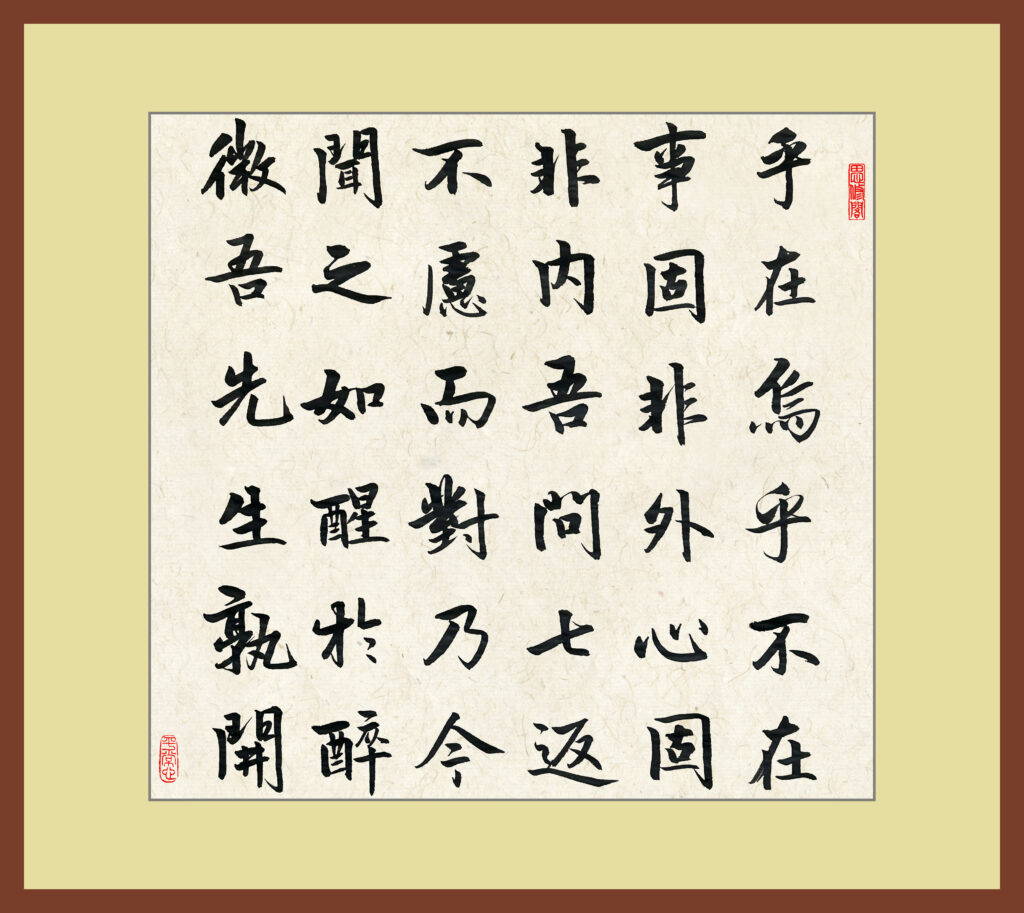 乎在烏乎不在
事固非外心固
非内吾問七返
不慮而對乃今
聞之如醒於醉
微吾先生孰開
思脩閣